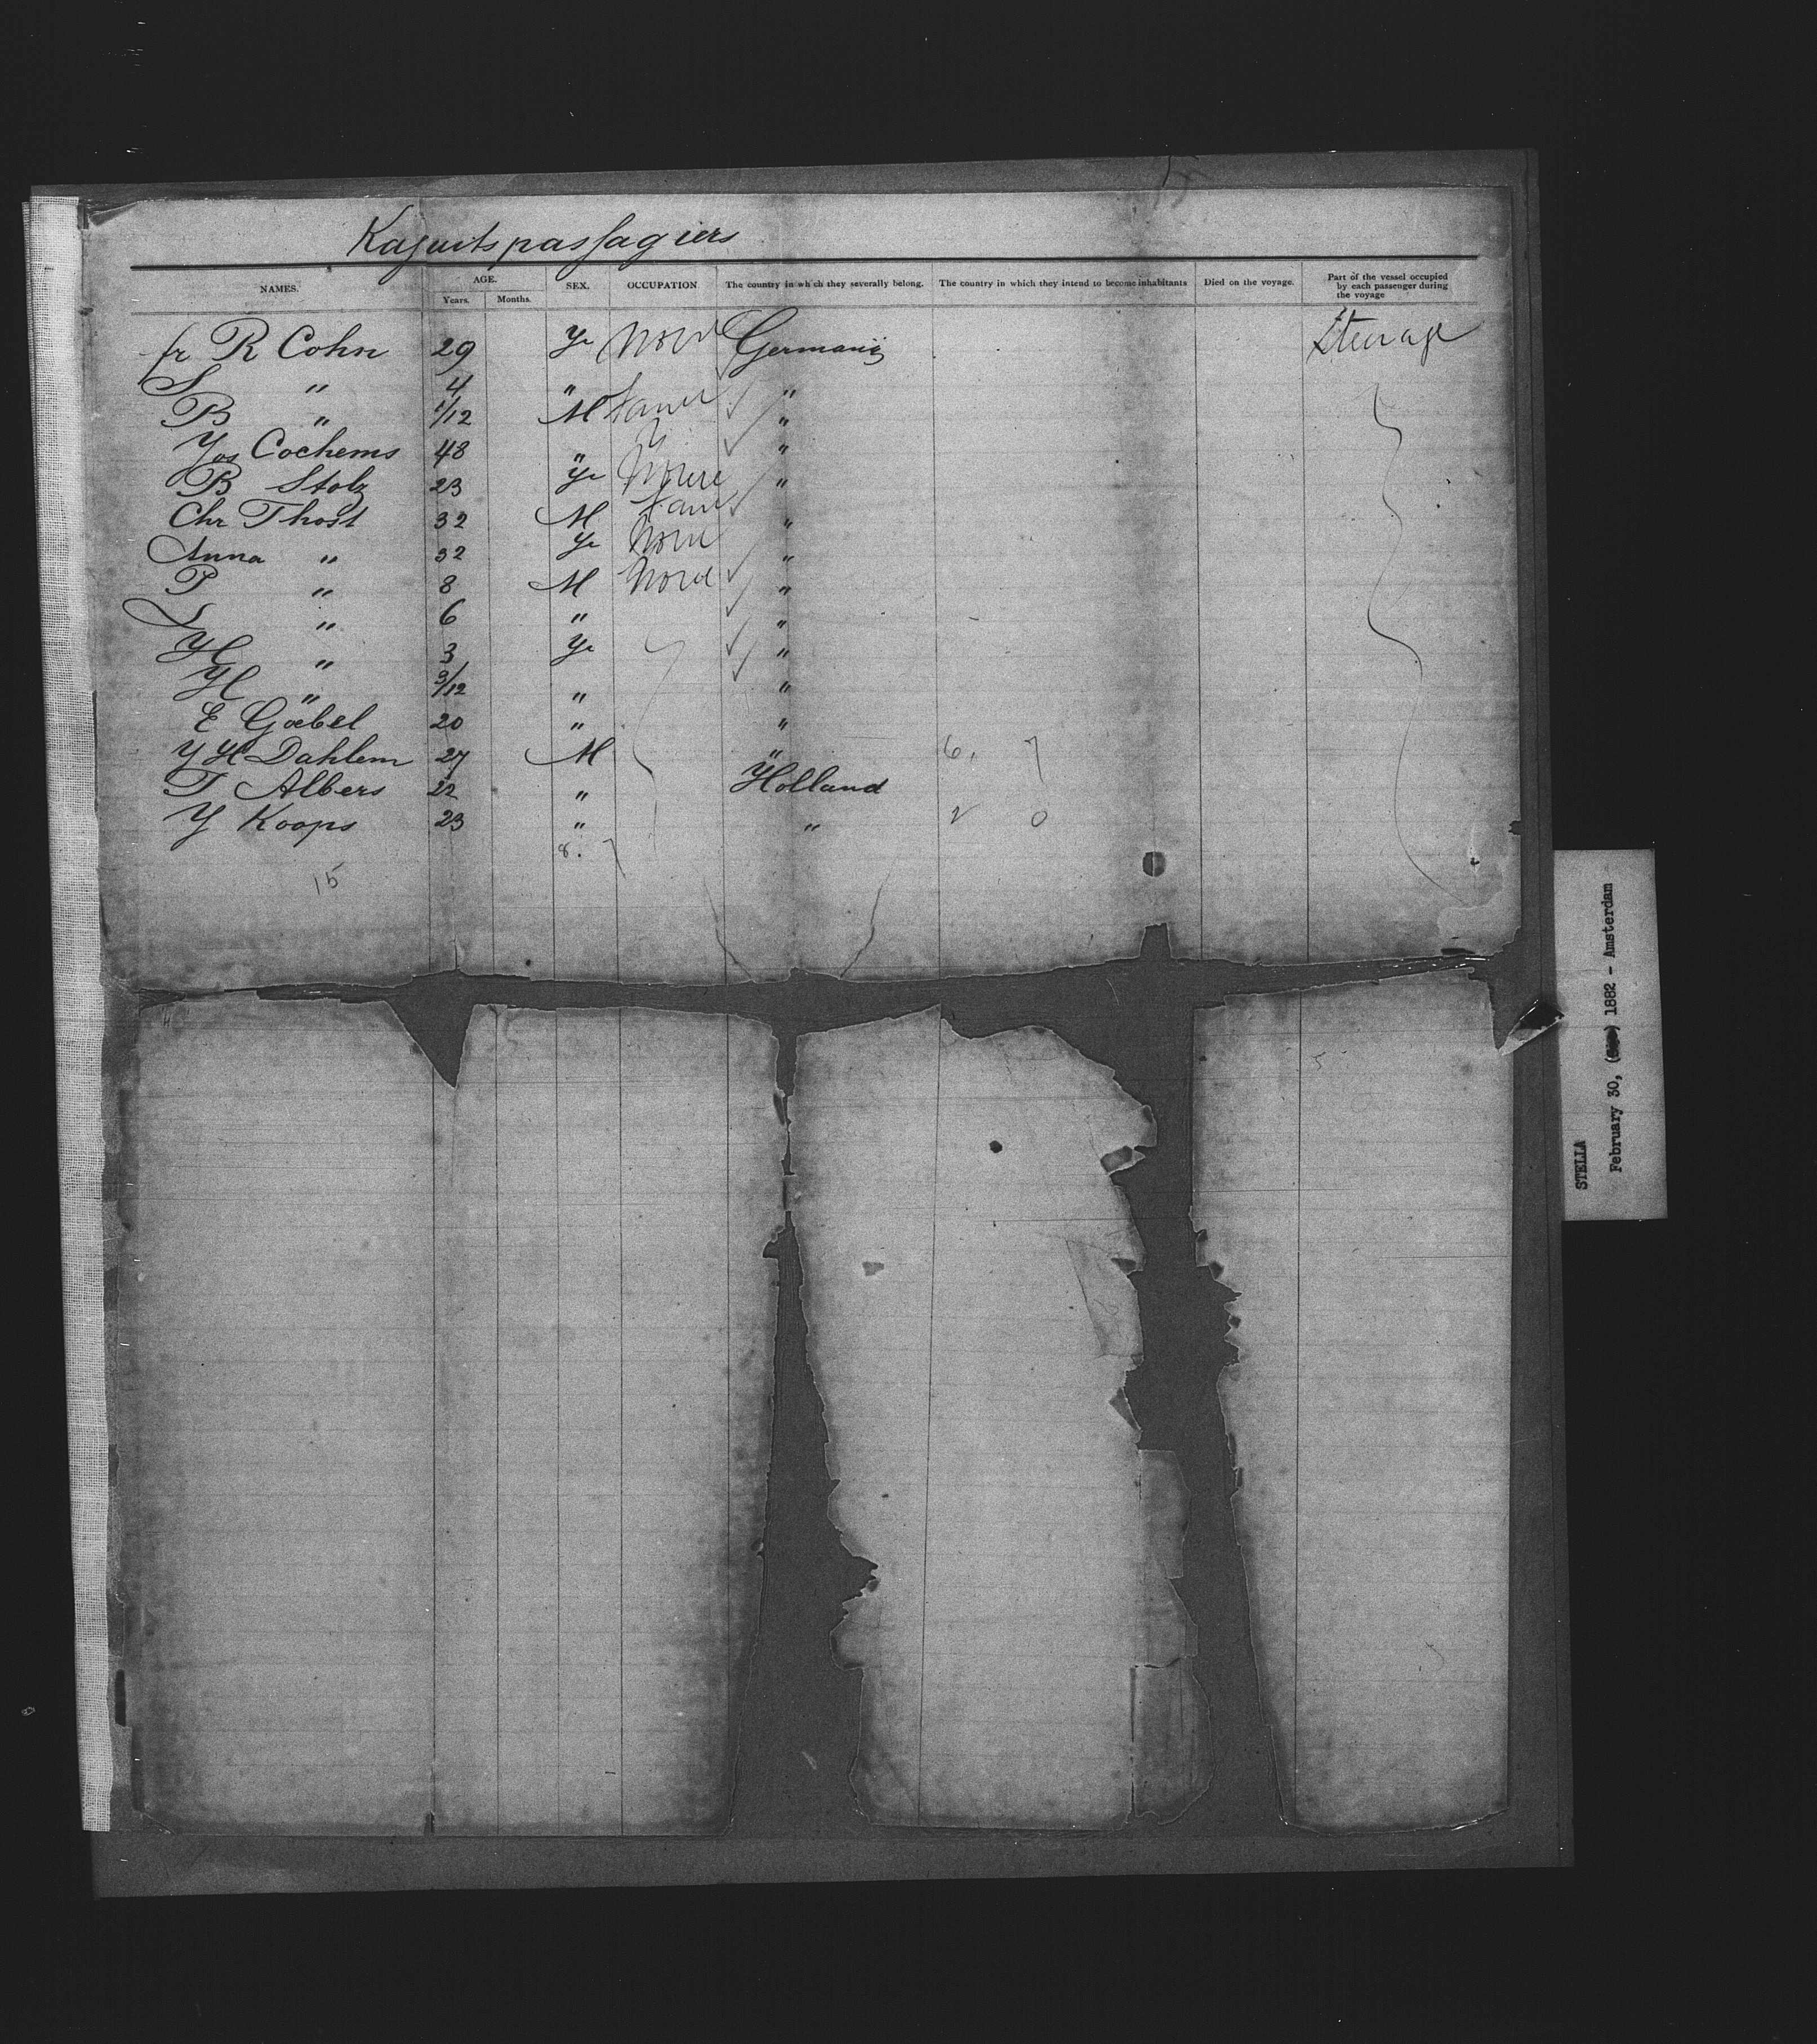 Kajuitspassagiers
NAMES. AGE. SEX. OCCUPATION The country in which they severally belong. The country in which they intend to become inhabitants Died on the voyage. Part of the vessel occupied by each passenger during the voyage
Years. Months.
fr R Cohn 29 Ye None Germanie Steerage
S " 4 " "
B " 1/12 M Farmer "
Jos Cochems 48 " "
B Stolz 23 Ye None "
Chr Thost 32 M Farmer "
Anna " 32 Ye None "
P " 8 M None "
L " 6 " "
H " 3 Ye "
H " 3/12 " "
E Göbel 20 " "
J H Dahlem 27 M " 6. 7
T Albers 22 " Holland
J Koops 23 " " 2 0
8. 7
15
STELLA
February 30, 1882 - Amsterdam